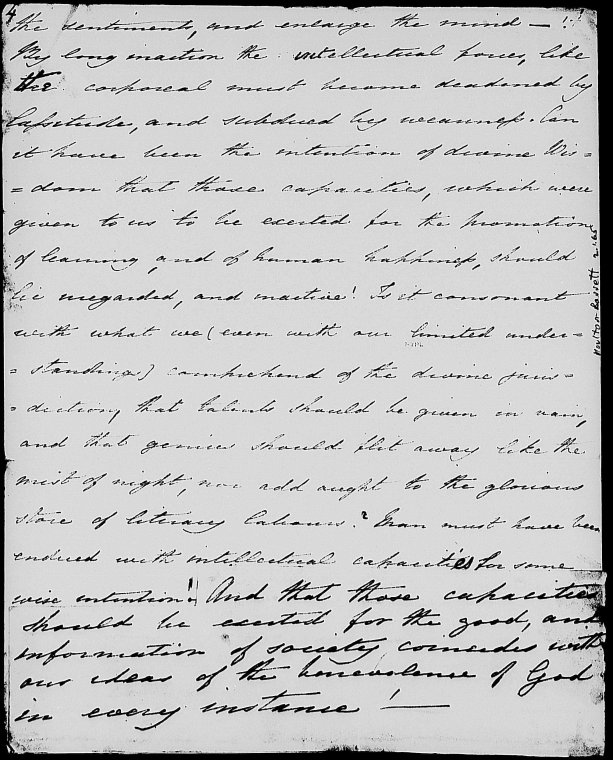 4
the sentiments, and enlarge the mind — !!
By long inaction the intellectual forces, like
the corporeal must become deadened by
lassitude, and subdued by weariness. Can
it have been the intention of divine Wis=
=dom that those capacities, which were
given to us to be exerted for the promotion
of learning, and of human happiness, should
lie unregarded, and inactive! Is it consonant
with what we (even with our limited under=
=standings) comprehend of the divine juris=
=diction, that talents should be given in vain,
and that genius should flit away like the
mist of night, nor add aught to the glorious
store of literary labours? Man must have been
endued with intellectual capacities for some
wise intention! And that those capacities
should be exerted for the good, and
information of society, coincides with
our ideas of the benevolence of God
in every instance! —